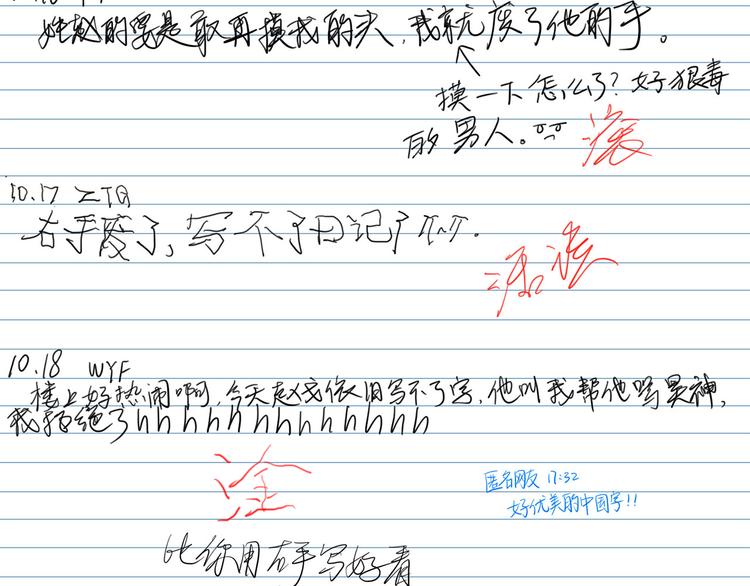 姓赵的要是敢再摸我的头，我就废了他的手。
摸一下怎么了？好狠毒
的男人。
滚
10.17 ZTQ
右手废了，写不了日记了TT~TT.
活该
10.18 WYF
楼上好热闹啊，今天赵戈依旧写不了字，他叫我帮他骂吴神，
我拒绝了hhhhhhhhhhhhh
滚
匿名网友 17:32
好优美的中国字！！
比你用右手写好看